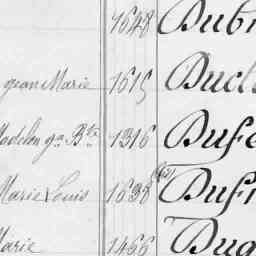 1648 Dub
jean Marie 1615 Duc
Madelon 1316 Duf
Marie Louis 1638 (bis) Duf
Marie 1466 Dug